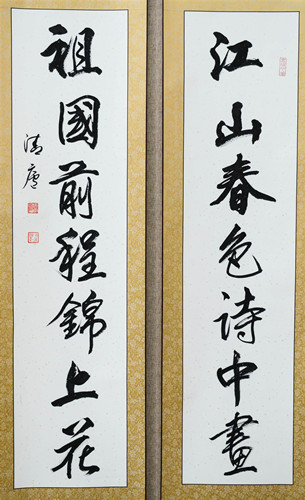 江山春色诗中畫
祖國前程錦上花
清廬